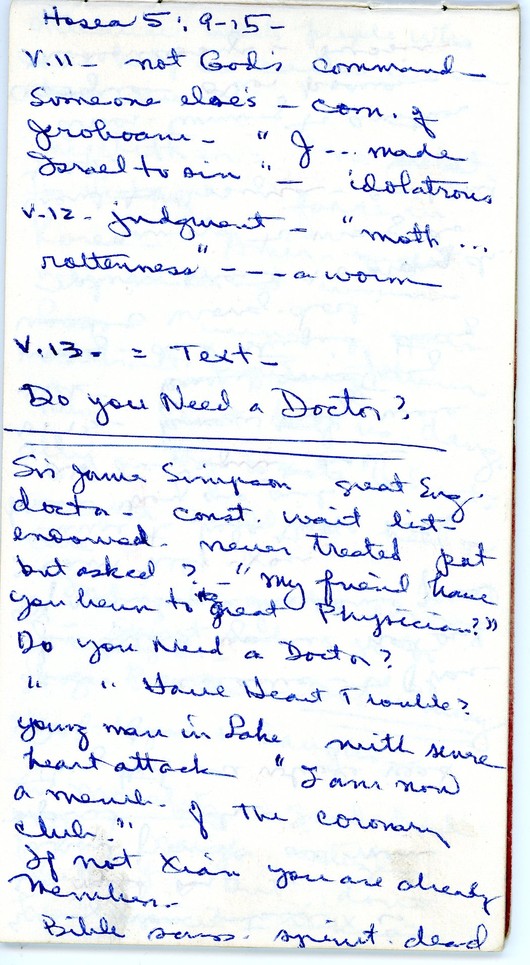 Hosea 5: 9-15-
V.11 - not God's command -
Someone else's - com. of
Jeroboam - " I --- made
Israel to sin " - idolatrous
V.12 - judgment - "moth ...
rottenness" - - - a worm

V.13. = Text -
Do you Need a Doctor?
Sir James Simpson great Eng.
doctor - const. wait list -
endowed. never treated pat
but asked ? - " my friend have
you been to the great Physician?"
Do you Need a Doctor?
" " Have Heart Trouble?
young man in Lake with severe
heart attack " I am now
a memb. of the coronary
club."
If not Xian you are already
Member.
Bible says. spirit. dead